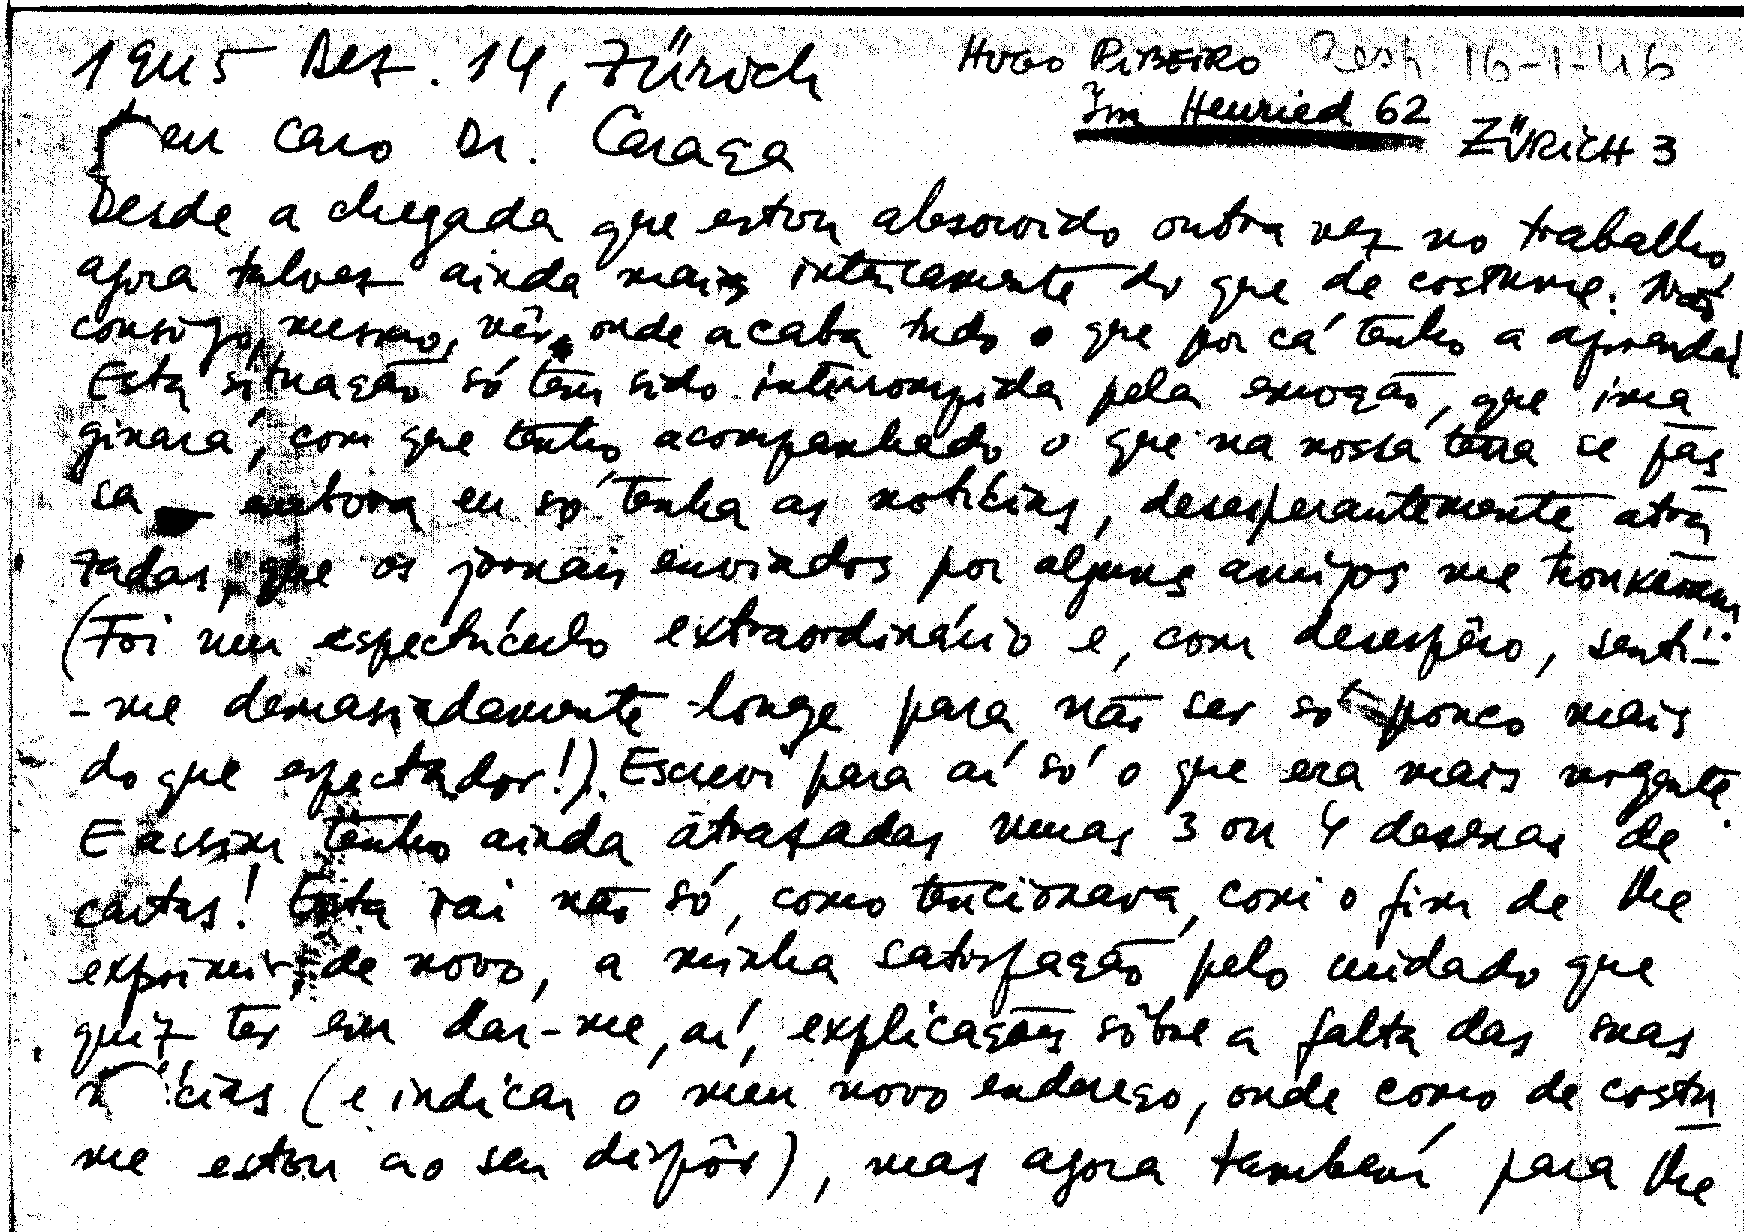 1945 Dez. 14, Zürich
HUGO RIBEIRO Resp. 16-1-46
Im Heuried 62 ZÜRICH 3
Meu caro Dr. Caraça
Desde a chegada que estou absorvido outra vez no trabalho,
agora talvez ainda mais inteiramente do que de costume. Não
consigo, mesmo, vêr onde acaba tudo o que por cá tenho a aprender!
Esta situação só tem sido interrompida pela emoção, que ima
ginará, com que tenho acompanhado o que na nossa terra se pas
sa — embora eu só tenha as notícias, desesperantemente atra
zadas, que os jornais enviados por alguns amigos me trouxeram
(Foi um espectáculo extraordinário e, com desespêro, senti-
-me demasiadamente longe para não ser só pouco mais
do que espectador!). Escrevi para aí só o que era mais urgente.
E assim tenho ainda atrasadas umas 3 ou 4 dezenas de
cartas! Esta vai não só, como tencionava, com o fim de lhe
exprimir, de novo, a minha satisfação pelo cuidado que
quiz ter em dar-me, aí, explicações sôbre a falta das suas
notícias (e indicar o meu novo endereço, onde como de costu
me estou ao seu dispôr), mas agora também para lhe